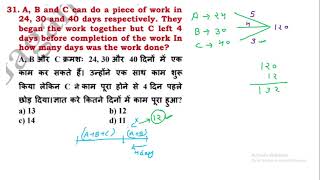 31. A, B and C can do a piece of work in
24, 30 and 40 days respectively. They
began the work together but C left 4
days before completion of the work In
how many days was the work done?
A, B और C क्रमशः 24, 30 और 40 दिनों में एक
काम कर सकते हैं। उन्होंने एक साथ काम शुरू
किया लेकिन C ने काम पूरा होने से 4 दिन पहले
छोड़ दिया।ज्ञात करे कितने दिनों में काम पूरा हुआ?
a) 13 b) 12
c) 14 d) 11
A → 24 5
B → 30 4 120
C → 40 3
120
12
132
C 12
(A+B+C) (A+B)
4 days